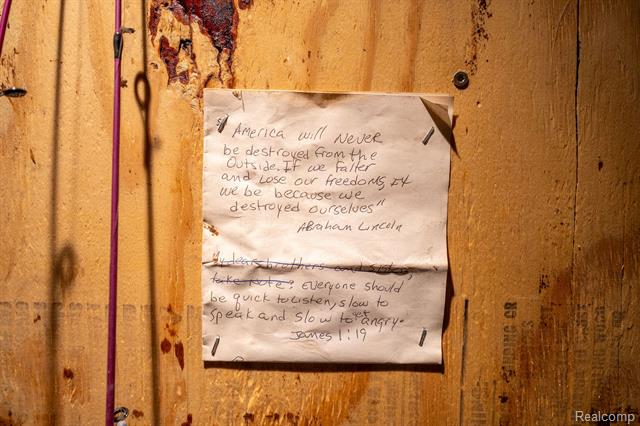 "America will Never
be destroyed from the
Outside. If we falter
and Lose our freedoms, It
will be because we
destroyed ourselves"
Abraham Lincoln
My dear brothers and sisters,
take note: Everyone should
be quick to Listen, slow to
speak and slow to get angry.
James 1:19
Realcomp